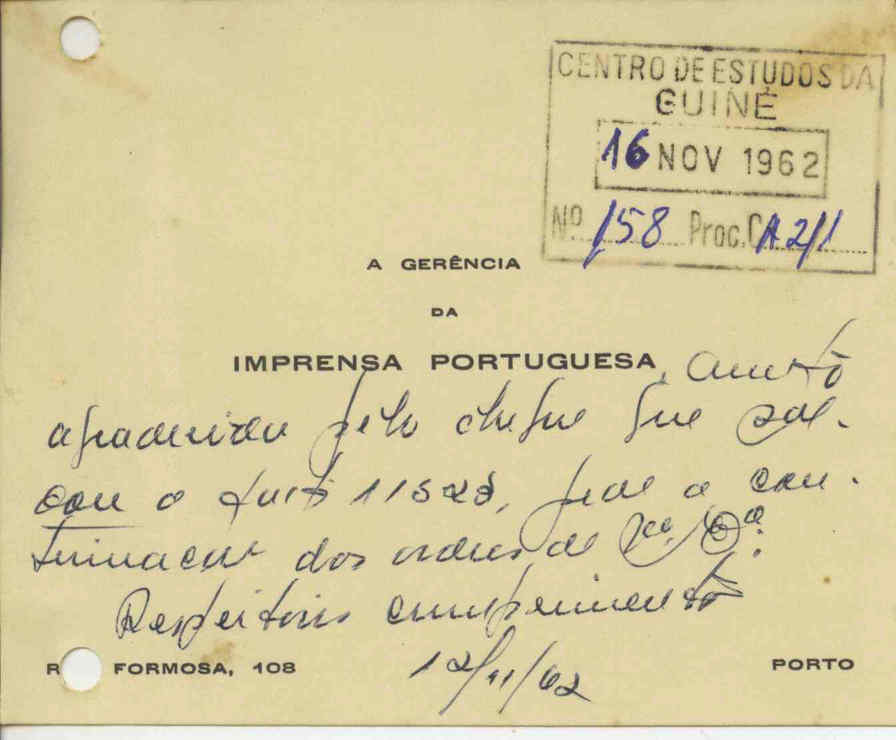 CENTRO DE ESTUDOS DA
GUINÉ
16 NOV 1962
Nº 158 Proc. CA 2/1
A GERÊNCIA
DA
IMPRENSA PORTUGUESA, muito
agradecida pelo cheque que sal-
dou o 11523, pede a con-
tinuação das ordens de
Respeitosos cumprimentos
12/11/62
R FORMOSA, 108
PORTO